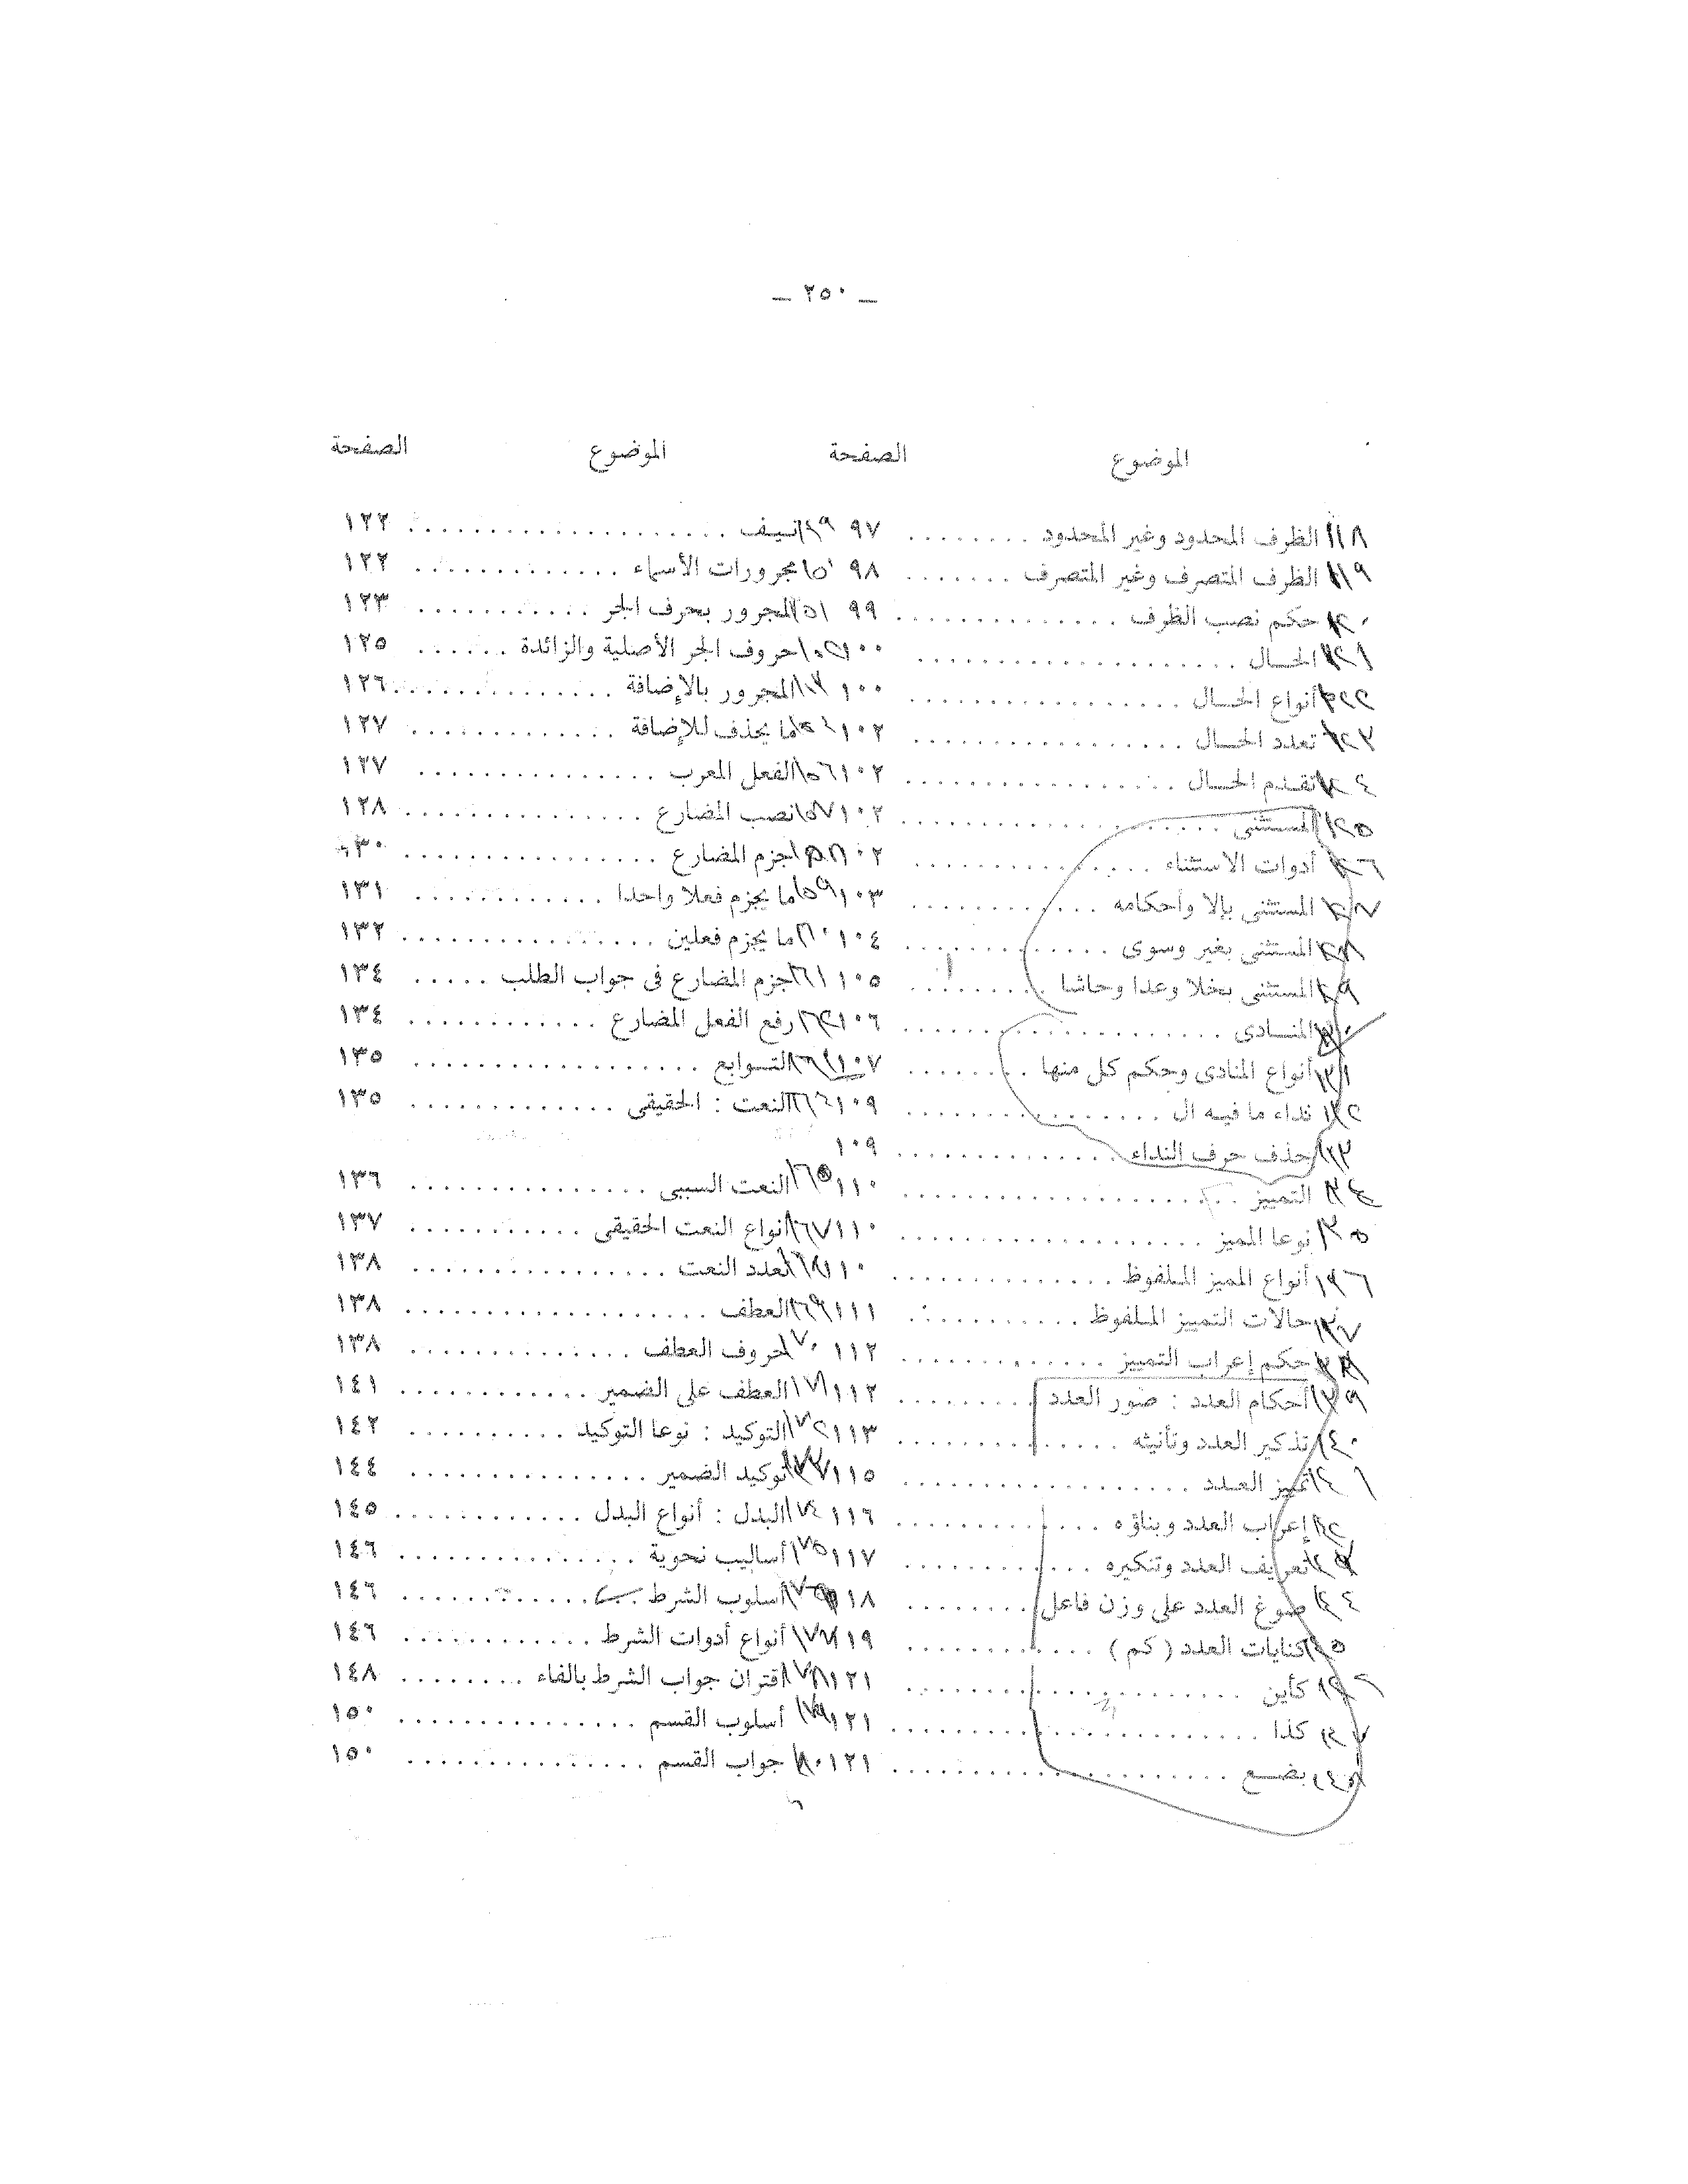 ــ ٢٥٠ ــ
الموضوع الصفحة الموضوع الصفحة
١١٨ الظرف المحدود وغير المحدود ........ ٩٧
١١٩ الظرف المتصرف وغير المتصرف ....... ٩٨
١٢٠ حكم نصب الظرف .............. ٩٩
١٢١ الحال .................... ١٠٠
١٢٢ أنواع الحال ................. ١٠٠
١٢٣ تعدد الحال ................. ١٠٢
١٢٤ تقدم الحال ................. ١٠٢
١٢٥ المستثنى .................... ١٠٢
١٢٦ أدوات الاستثناء .............. ١٠٢
١٢٧ المستثنى بإلا وأحكامه ............ ١٠٣
١٢٨ المستثنى بغير وسوى ............. ١٠٤
١٢٩ المستثنى بخلا وعدا وحاشا ......... ١٠٥
١٣٠ المنادى .................... ١٠٦
١٣١ أنواع المنادى وحكم كل منها ........ ١٠٧
١٣٢ نداء ما فيه ال ................ ١٠٩
١٣٣ حذف حرف النداء .............. ١٠٩
١٣٤ التمييز .................... ١١٠
١٣٥ نوعا المميز ................... ١١٠
١٣٦ أنواع المميز الملفوظ .............. ١١٠
١٣٧ حالات التمييز الملفوظ ............ ١١١
١٣٨ حكم إعراب التمييز ............. ١١٢
١٣٩ أحكام العدد : صور العدد ......... ١١٢
١٤٠ تذكير العدد وتأنيثه .............. ١١٣
١٤١ تمييز العدد .................. ١١٥
١٤٢ إعراب العدد وبناؤه ............. ١١٦
١٤٣ تعريف العدد وتنكيره ............ ١١٧
١٤٤ صوغ العدد على وزن فاعل ........ ١١٨
١٤٥ كنايات العدد ( كم ) ............ ١١٩
١٤٦ كأين ..................... ١٢١
١٤٧ كذا ....................... ١٢١
١٤٨ بضع ..................... ١٢١
١٤٩ نيف .................... ١٢٢
١٥٠ مجرورات الأسماء ............. ١٢٢
١٥١ المجرور بحرف الجر ........... ١٢٣
حروف الجر الأصلية والزائدة ...... ١٢٥
المجرور بالإضافة .............. ١٢٦
ما يحذف للإضافة ............. ١٢٧
١٥٦ الفعل المعرب ............... ١٢٧
١٥٧ نصب المضارع ............... ١٢٨
١٥٨ جزم المضارع ................ ١٣٠
١٥٩ ما يجزم فعلا واحدا ............ ١٣١
١٦٠ ما يجزم فعلين ................ ١٣٢
١٦١ جزم المضارع فى جواب الطلب ..... ١٣٤
١٦٢ رفع الفعل المضارع ............ ١٣٤
١٦٣ التوابع .................. ١٣٥
١٦٤ النعت : الحقيقى ............. ١٣٥
١٦٥ النعت السببى ............... ١٣٦
١٦٧ أنواع النعت الحقيقى ........... ١٣٧
١٦٨ تعدد النعت ................ ١٣٨
١٦٩ العطف ................... ١٣٨
١٧٠ حروف العطف .............. ١٣٨
١٧١ العطف على الضمير ............ ١٤١
١٧٢ التوكيد : نوعا التوكيد .......... ١٤٢
١٧٣ توكيد الضمير ............... ١٤٤
١٧٤ البدل : أنواع البدل ............ ١٤٥
١٧٥ أساليب نحوية ............... ١٤٦
١٧٦ أسلوب الشرط .............. ١٤٦
١٧٧ أنواع أدوات الشرط ............ ١٤٦
١٧٨ اقتران جواب الشرط بالفاء ........ ١٤٨
١٧٩ أسلوب القسم ............... ١٥٠
١٨٠ جواب القسم ............... ١٥٠